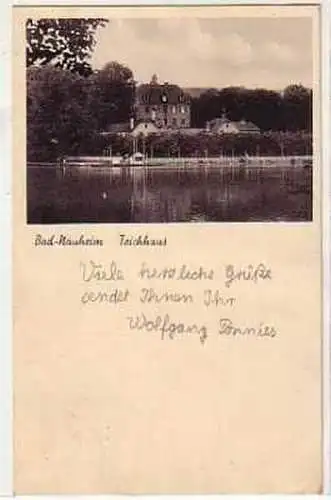 Bad-Nauheim Teichhaus
Viele herzliche Grüße
sendet Ihnen Ihr
Wolfgang Tönnies